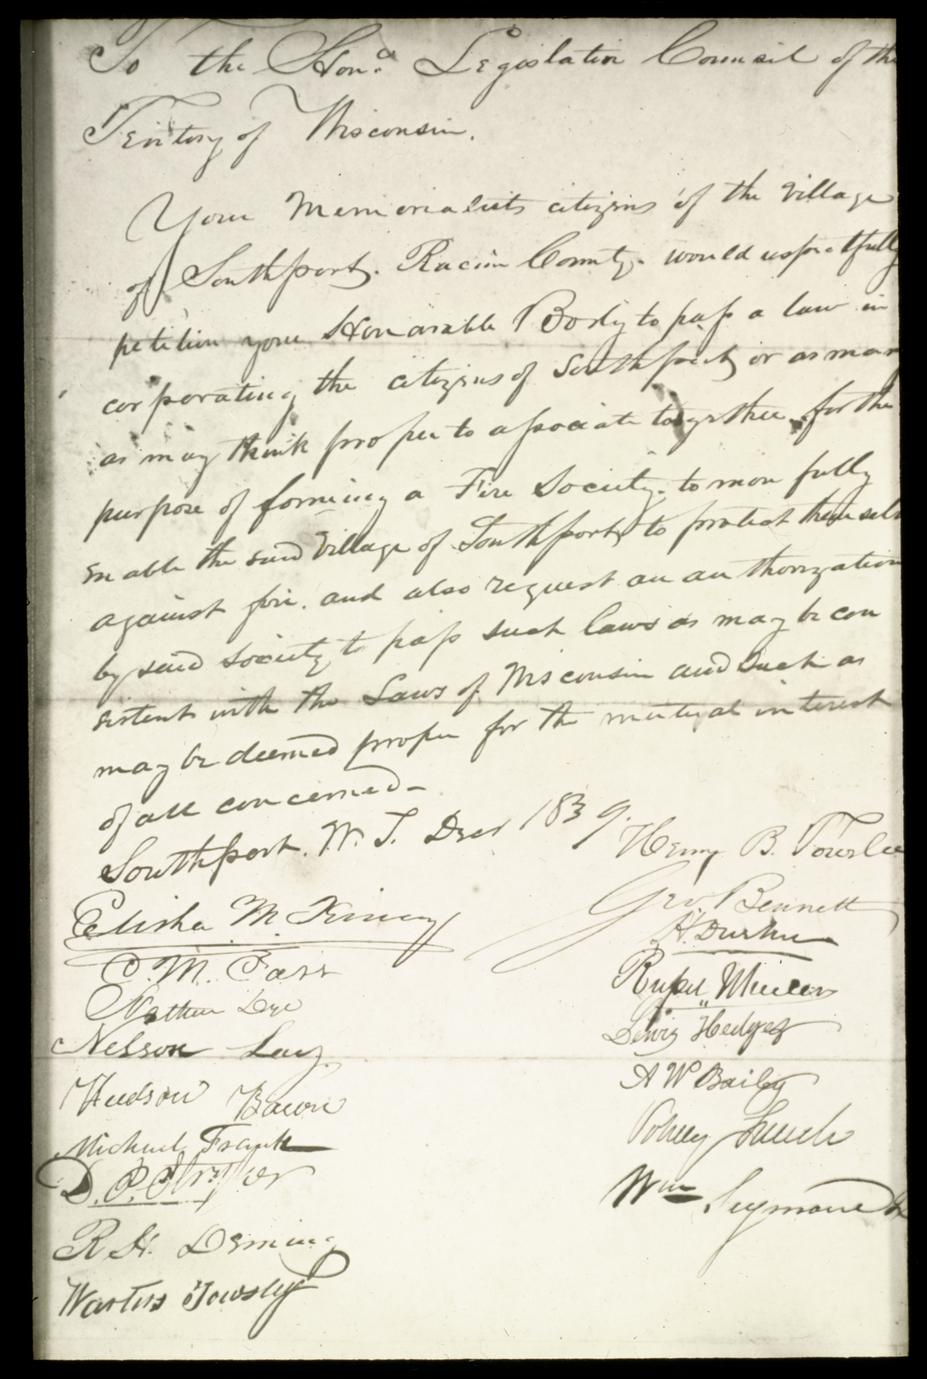 To the Hon.e Legislative Council of the
Territory of Wisconsin.
Your Memorialists citizens of the Village
of Southport. Racine County. would respectfully
petition your Honarable Body to pass a law in
corporating the citizens of Southport, or as many
as may think proper to associate together for the
purpose of forming a Fire Society. to more fully
enable the said Village of Southport, to protect themselv
against fire. and also request an authorization
by said Society to pass such laws as may be con
sistent with the Laws of Wisconsin and such as
may be deemed proper for the mutual interest
of all concerned-
Southport. W. T. Decr 1839.
Henry B. Towslee
Geo. Bennett
H. Durkee
Lewis Hedges
A W Bailey
Wm Seymour
Elisha M. Kinney
Nathan Dye
Nelson Lay.
Hudson Bacon
Michael Frank
R. H. Deming
Towsley